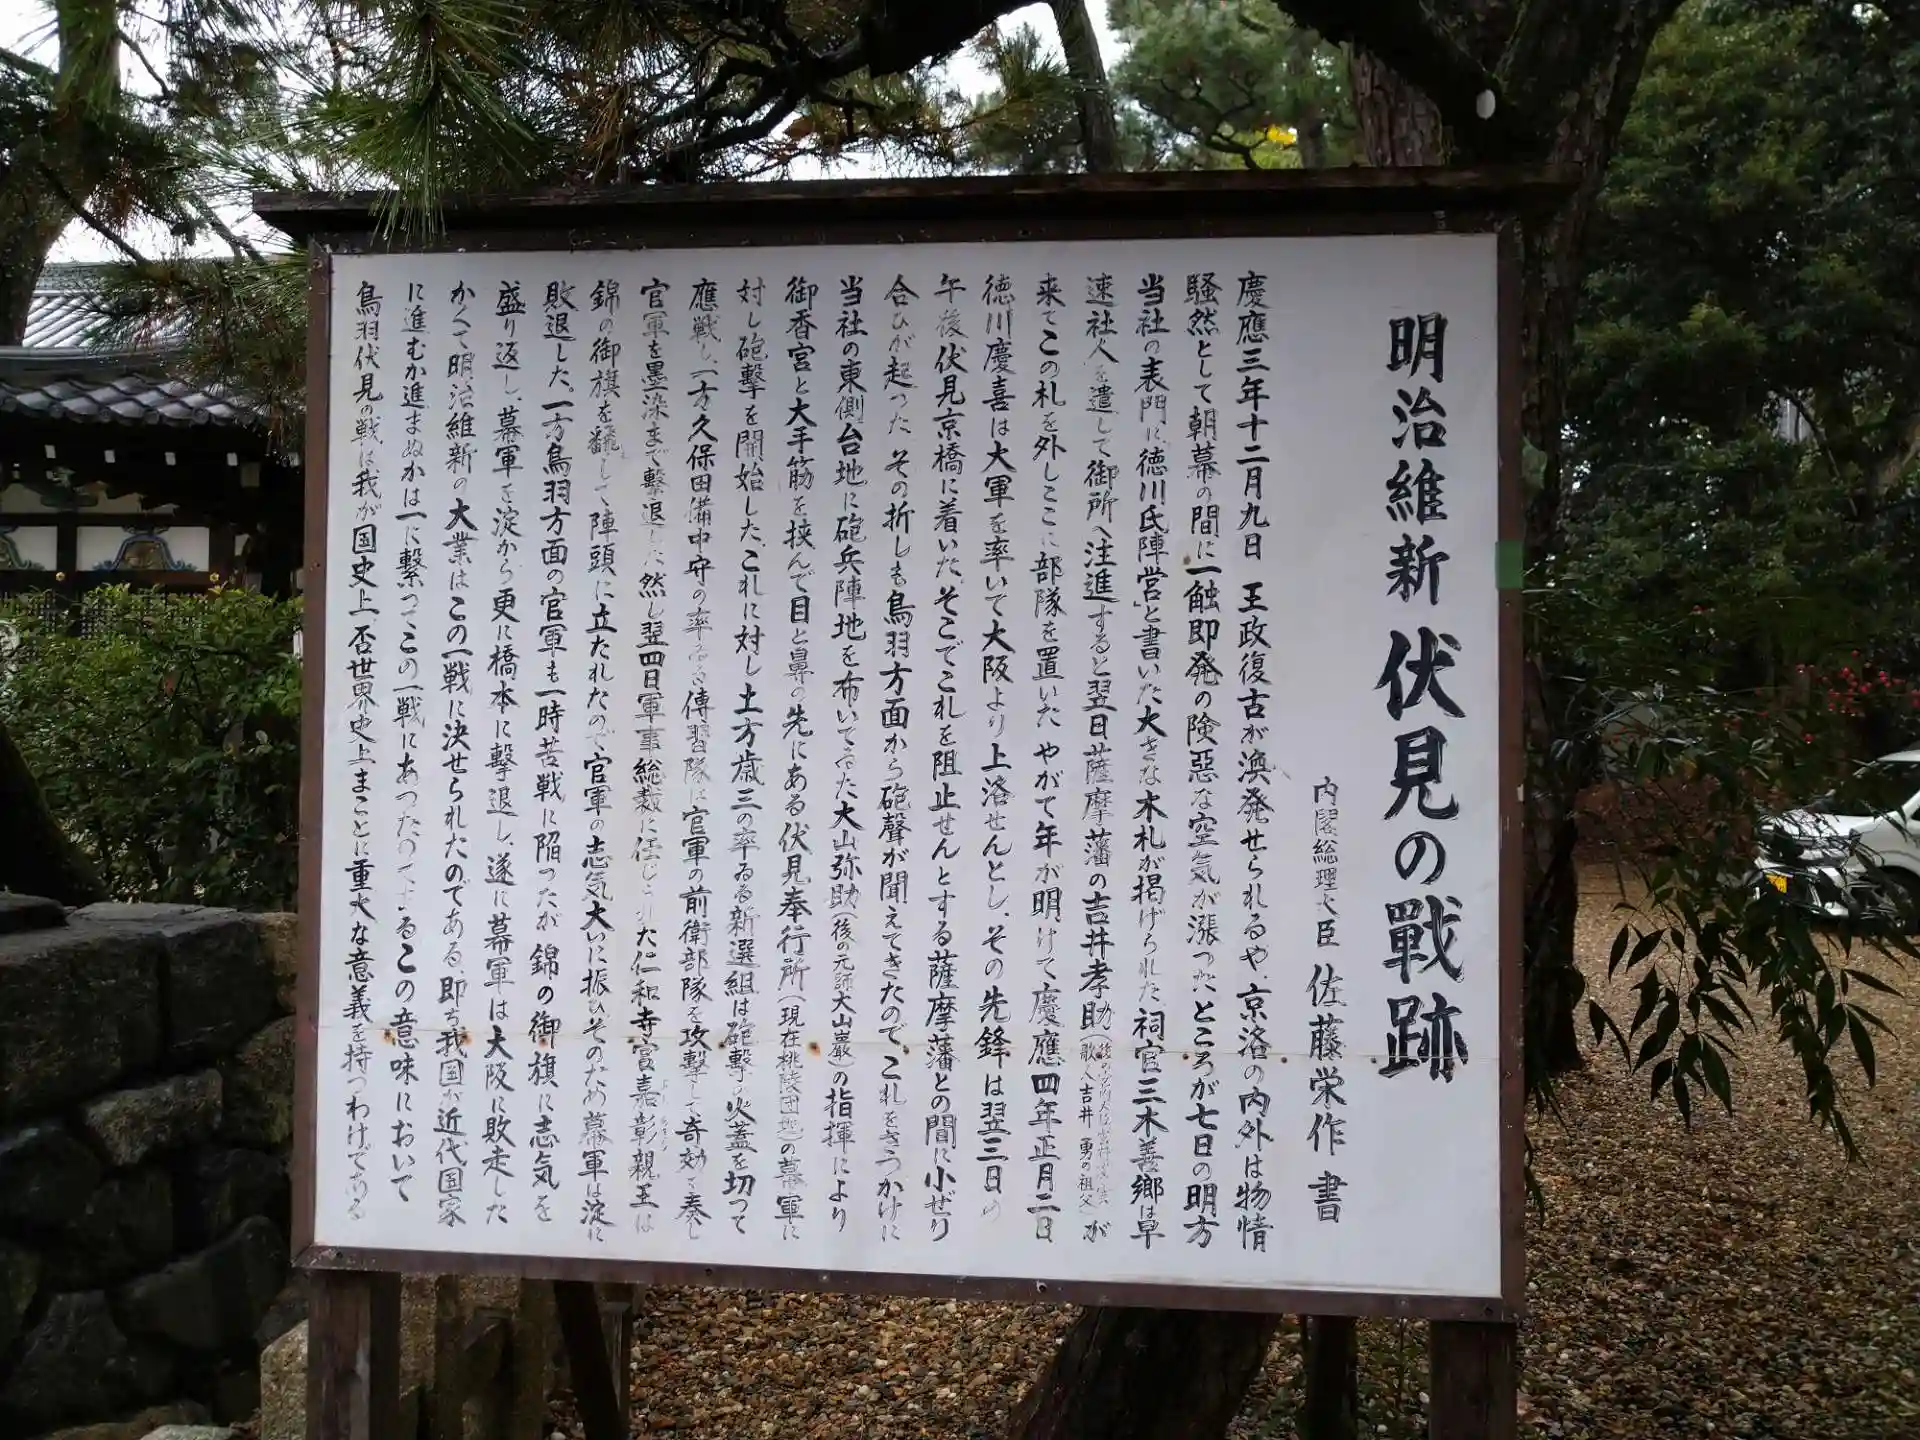 明治維新 伏見の戰跡
内閣総理大臣 佐藤栄作 書
慶應三年十二月九日 王政復古が渙発せられるや、京洛の内外は物情
騒然として朝幕の間に一触即発の険悪な空気が漲った。ところが七日の明方
当社の表門に「徳川氏陣営」と書いた大きな木札が掲げられた。祠官三木善郷は早
速社人を遣して御所へ注進すると翌日薩摩藩の吉井孝助(歌人吉井 勇の祖父)が
来てこの札を外しここに部隊を置いた。やがて年が明けて慶應四年正月二日
徳川慶喜は大軍を率いて大阪より上洛せんとし、その先鋒は翌三日の
午後伏見京橋に着いた。そこでこれを阻止せんとする薩摩藩との間に小ぜり
合ひが起った。その折しも鳥羽方面から砲聲が聞えてきたので、これをきっかけに
当社の東側台地に砲兵陣地を布いてゐた大山弥助(後の元師大山巌)の指揮により
御香宮と大手筋を挟んで目と鼻の先にある伏見奉行所(現在桃陵団地)の幕軍に
対し砲撃を開始した、これに対し土方歳三の率ゐる新選組は砲撃の火蓋を切って
應戦し、一方久保田備中守の率ゐる傳習隊は官軍の前衛部隊を攻撃して奇効を奏し
官軍を墨染まで撃退した 然し翌四日軍事総裁に任じられた仁和寺宮嘉彰親王は
錦の御旗を飜して陣頭に立たれたので官軍の志気大いに振ひそのため幕軍は淀に
敗退した。一方鳥羽方面の官軍も一時苦戦に陥ったが 錦の御旗に志気を
盛り返し、幕軍を淀から更に橋本に撃退し、遂に幕軍は大阪に敗走した
かくて明治維新の大業はこの一戦に決せられたのである。即ち我国が近代国家
に進むか進まぬかは一に繋ってこの一戦にあったのである この意味において
鳥羽伏見の戦は我が国史上、否世界史上まことに重大な意義を持つわけである